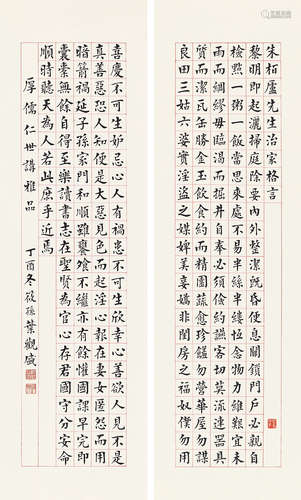 朱柏廬先生治家格言
黎明即起灑掃庭除要內外整潔既昏便息關鎖門戶必親自
檢點一粥一飯當思來處不易半絲半縷恒念物力維艱宜未
雨而綢繆毋臨渴而掘井自奉必須儉約讌客切勿留連器具
質而潔瓦缶勝金玉飲食約而精園蔬愈珍饈勿營華屋勿謀
良田三姑六婆實淫盜之媒婢美妾嬌非閨房之福奴僕勿用
喜慶不可生妒忌心人有禍患不可生欣幸心善欲人見不是
真善惡恐人知便是大惡見色而起淫心報在妻女匿怨而用
暗箭禍延子孫家門和順雖饔飧不繼亦有餘懽國課早完即
囊橐無餘自得至樂讀書志在聖賢為官心存君國守分安命
順時聽天為人若此庶乎近焉
厚儒仁世講雅品 丁酉冬筱孫葉觀盛